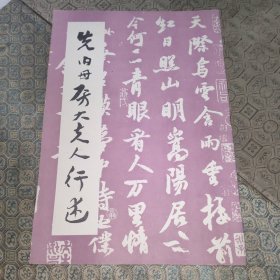 天際烏雲含雨重樓前
紅日照山明嵩陽居士
今何在青眼看人万里情
詩也僕
先伯母房太夫人行述